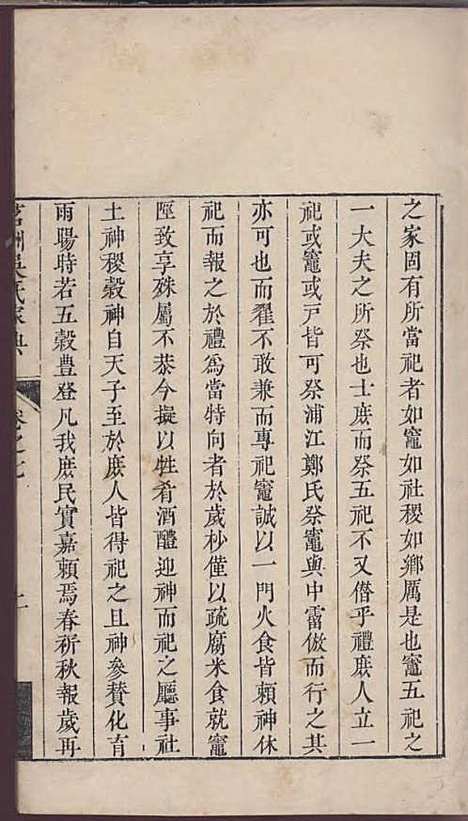 之家固有所當祀者如竈如社稷如鄉厲是也竈五祀之
一大夫之所祭也士庶而祭五祀不又僭乎禮庶人立一
祀或竈或戸皆可祭浦江鄭氏祭竈與中霤倣而行之其
亦可也而翟不敢兼而專祀竈誠以一門火食皆賴神休
祀而報之於禮爲當特向者於歲杪僅以疏腐米食就竈
陘致享殊屬不恭今擬以牲肴酒醴迎神而祀之廳事社
土神稷穀神自天子至於庶人皆得祀之且神參贊化育
雨暘時若五穀豊登凡我庶民實嘉賴焉春祈秋報歲再
茗洲吳氏家典
卷之七